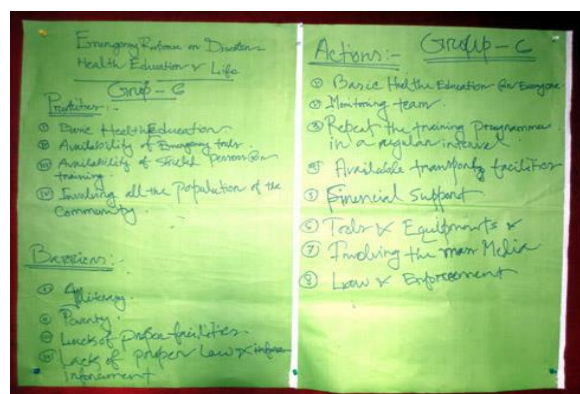 Emergency Response on Disaster
Health Education & Life
Group - C
Priorities:-
① Basic Health Education.
② Availability of Emergency tools.
③ Availability of skilled Persons on
training.
④ Involving all the population of the
Community.
Barriers:-
① Illiteracy.
② Poverty.
③ Lack of proper facilities.
④ Lack of proper Law &
Inforcement
Actions:- Group - C
① Basic Health Education for Everyone
② Monitoring team.
③ Repeat the training Programme
in a regular interval.
④ Available transport facilities
⑤ Financial Support
⑥ Tools & Equipments &
⑦ Involving the mass Media
⑧ Law & Enforcement